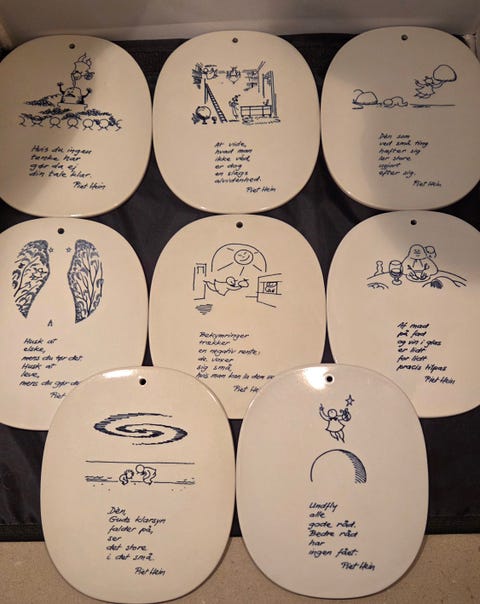 Hvis du ingen
tanke har
gør du ej
din tale klar.
Piet Hein
At vide,
hvad man
ikke véd,
er dog
en slags
alvidenhed.
Piet Hein
Den som
ved små ting
hefter sig
lar store
ugjort
efter sig.
Piet Hein
Husk at
elske,
mens du tør det.
Husk at
leve,
mens du gør
Piet
Bekymringer
trækker
en negativ rente;
de vokser
sig små,
hvis man kan la dem
Piet Hein
Af mad
på fad
og vin i glas
er lidt
for lidt
præcis tilpas
Piet Hein
Dén,
Guds klarsyn
falder på,
ser
det store
i det små.
Piet Hein
Undfly
alle
gode råd.
Bedre råd
har
ingen fået.
Piet Hein